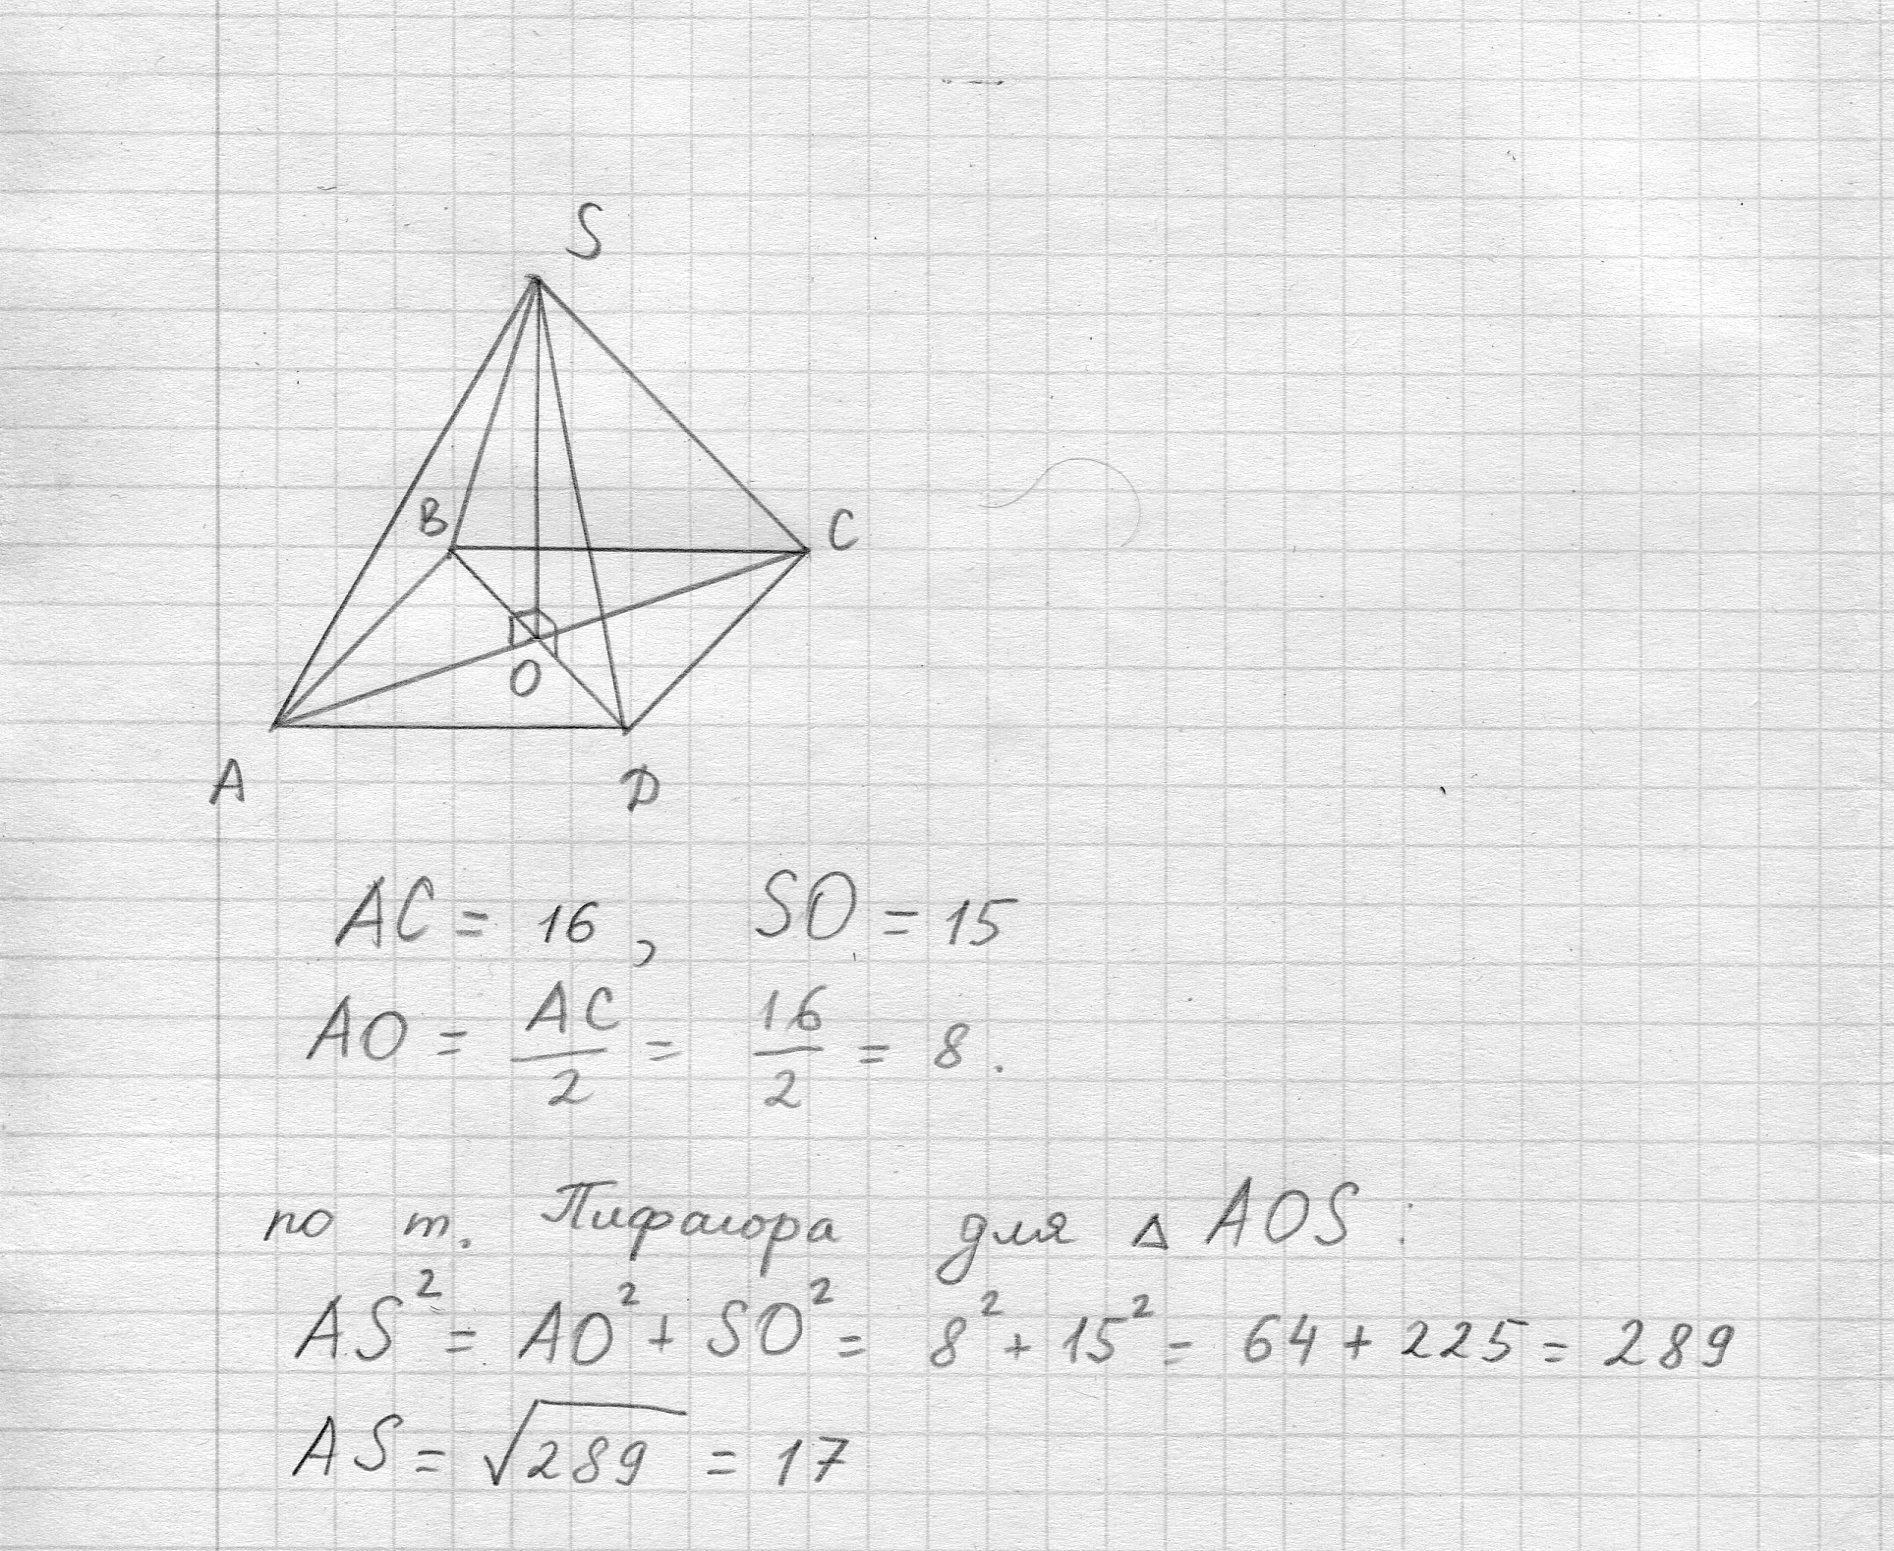 S
B
C
O
A
D
AC = 16, SO = 15
AO = AC/2 = 16/2 = 8.
по т. Пифагора для △ AOS:
AS² = AO² + SO² = 8² + 15² = 64 + 225 = 289
AS = √289 = 17